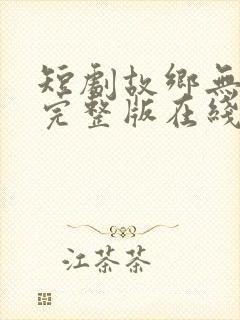 短劇故鄉無
完整版在綫
江茶茶